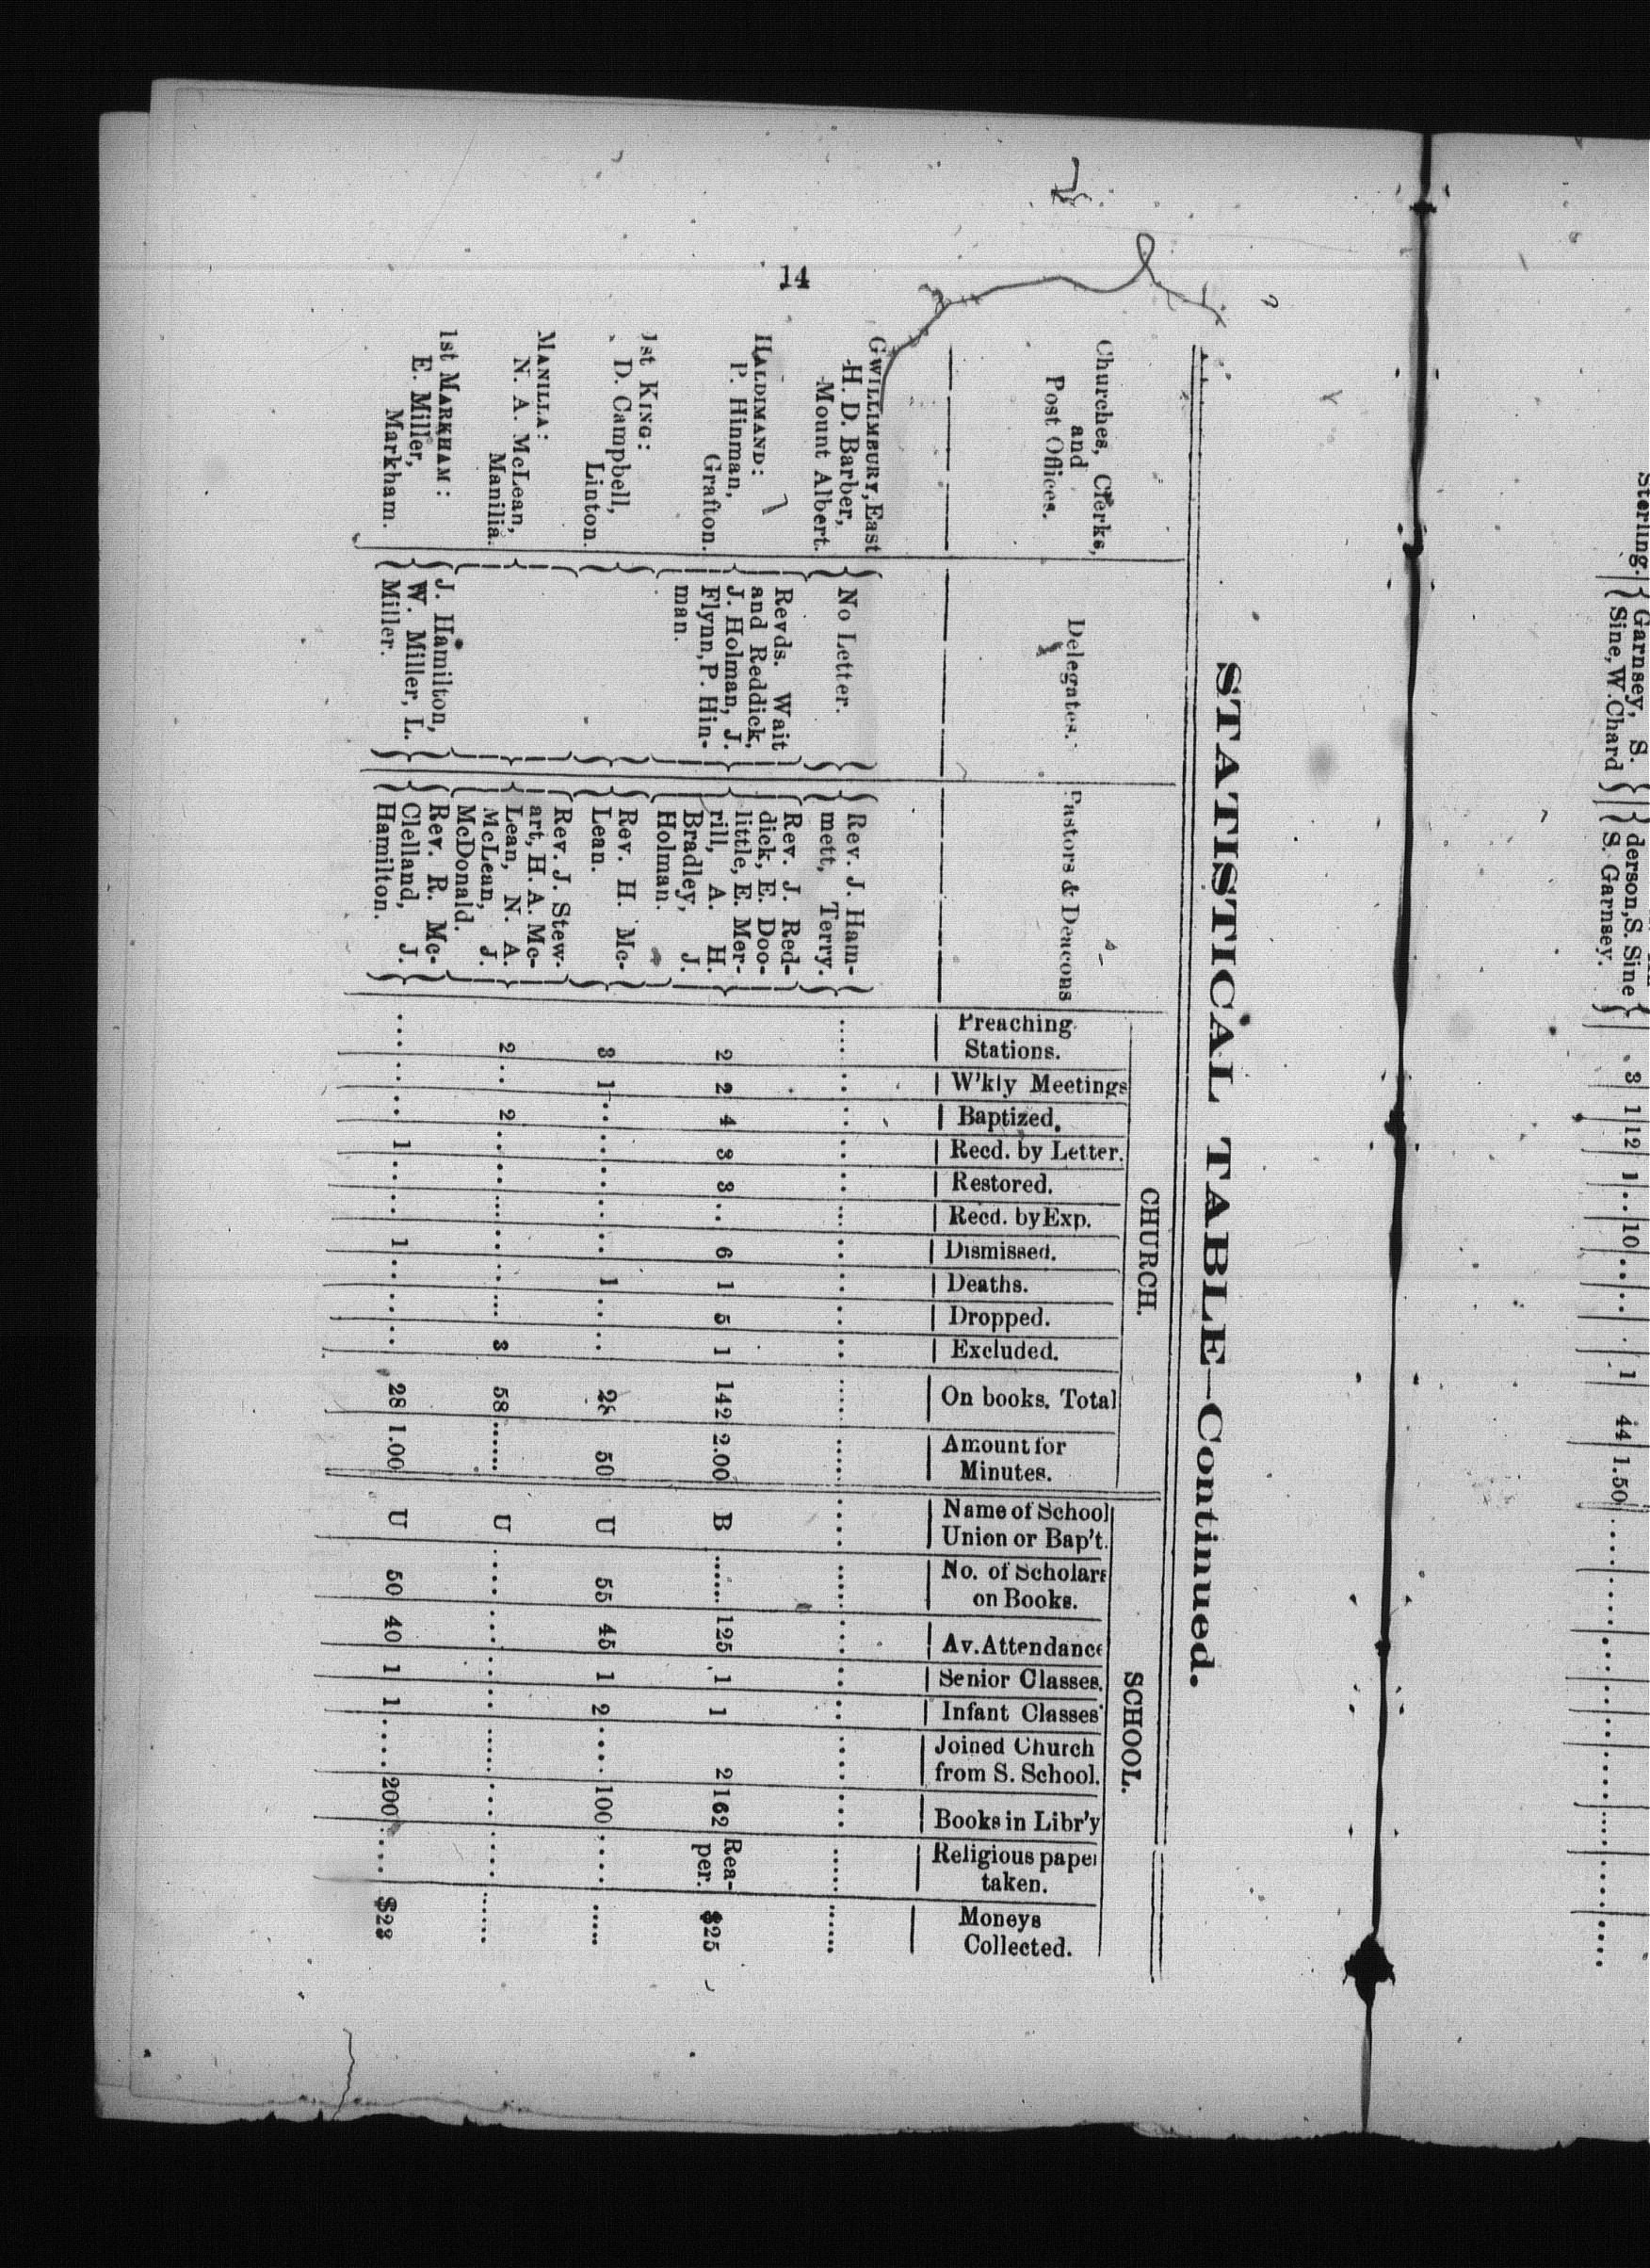 14
STATISTICAL TABLE—Continued.
Churches, Clerks,
and
Post Offices.
Delegates.
Pastors & Deacons
CHURCH.
Preaching
Stations.
W'kly Meetings
Baptized.
Recd. by Letter.
Restored.
Recd. by Exp.
Dismissed.
Deaths.
Dropped.
Excluded.
On books. Total
Amount for
Minutes.
SCHOOL.
Name of School
Union or Bap't.
No. of Scholars
on Books.
Av. Attendance
Senior Classes.
Infant Classes
Joined Church
from S. School.
Books in Libr'y
Religious paper
taken.
Moneys
Collected.
GWILLIMBURY, East
H. D. Barber,
Mount Albert.
No Letter.
Rev. J. Ham-
mett, Terry.
HALDIMAND:
P. Hinman,
Grafton.
Revds. Wait
and Reddick,
J. Holman, J.
Flynn, P. Hin-
man.
Rev. J. Red-
dick, E. Doo-
little, E. Mer-
rill, A. H.
Bradley, J.
Holman.
2 2 4 3 3 .. 6 1 5 1 142 2.00 B ...... 125 1 1 2 162 Rea-
per. $25
1st KING:
D. Campbell,
Linton.
Rev. H. Mc-
Lean.
3 1 .. .. .. .. .. 1 .. .. 50 U 55 45 1 2 .... 100 .... .....
MANILLA:
N. A. McLean,
Manilia.
Rev. J. Stew-
art, H. A. Mc-
Lean, N. A.
McLean, J.
McDonald.
2 .. 2 .. .. ... .. .. ... 3 58 ...... U .... .... .. .. ..... .... .... ......
1st MARKHAM:
E. Miller,
Markham.
J. Hamilton,
W. Miller, L.
Miller.
Rev. R. Mc-
Clelland, J.
Hamilton.
... .. .. 1 .. .. 1 .. .. .. 28 1.00 U 50 40 1 1 .... 200 .... $23
Sterling.
Garnsey, S.
Sine, W. Chard
derson, S. Sine
S. Garnsey.
3 1 12 1 .. 10 .. .. . 1 44 1.50